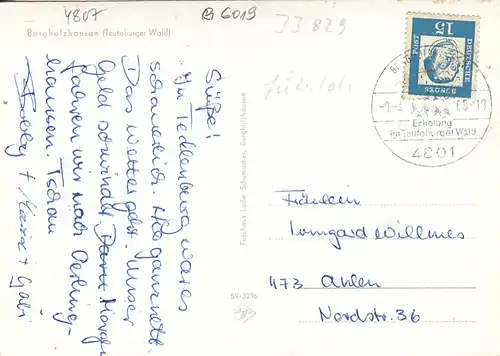 4807
6019
33 829
Borgholzhausen (Teutoburger Wald)
Süße!
In Tecklenburg war es
schauerlich. Aber ganz nett.
Das Wetter geht. Unser
Geld schwindet. Dann Morgen
fahren wir nach Oerling-
hausen. Tschau
+ Maria + Gabi
Fotohaus Ludw. Schumacher, Borgholzhausen
59-3296
15
DEUTSCHE
BUNDES
POST
Erholung
im Teutoburger Wald
4801
Fräulein
Irmgard Willmes
473 Ahlen
Nordstr. 36